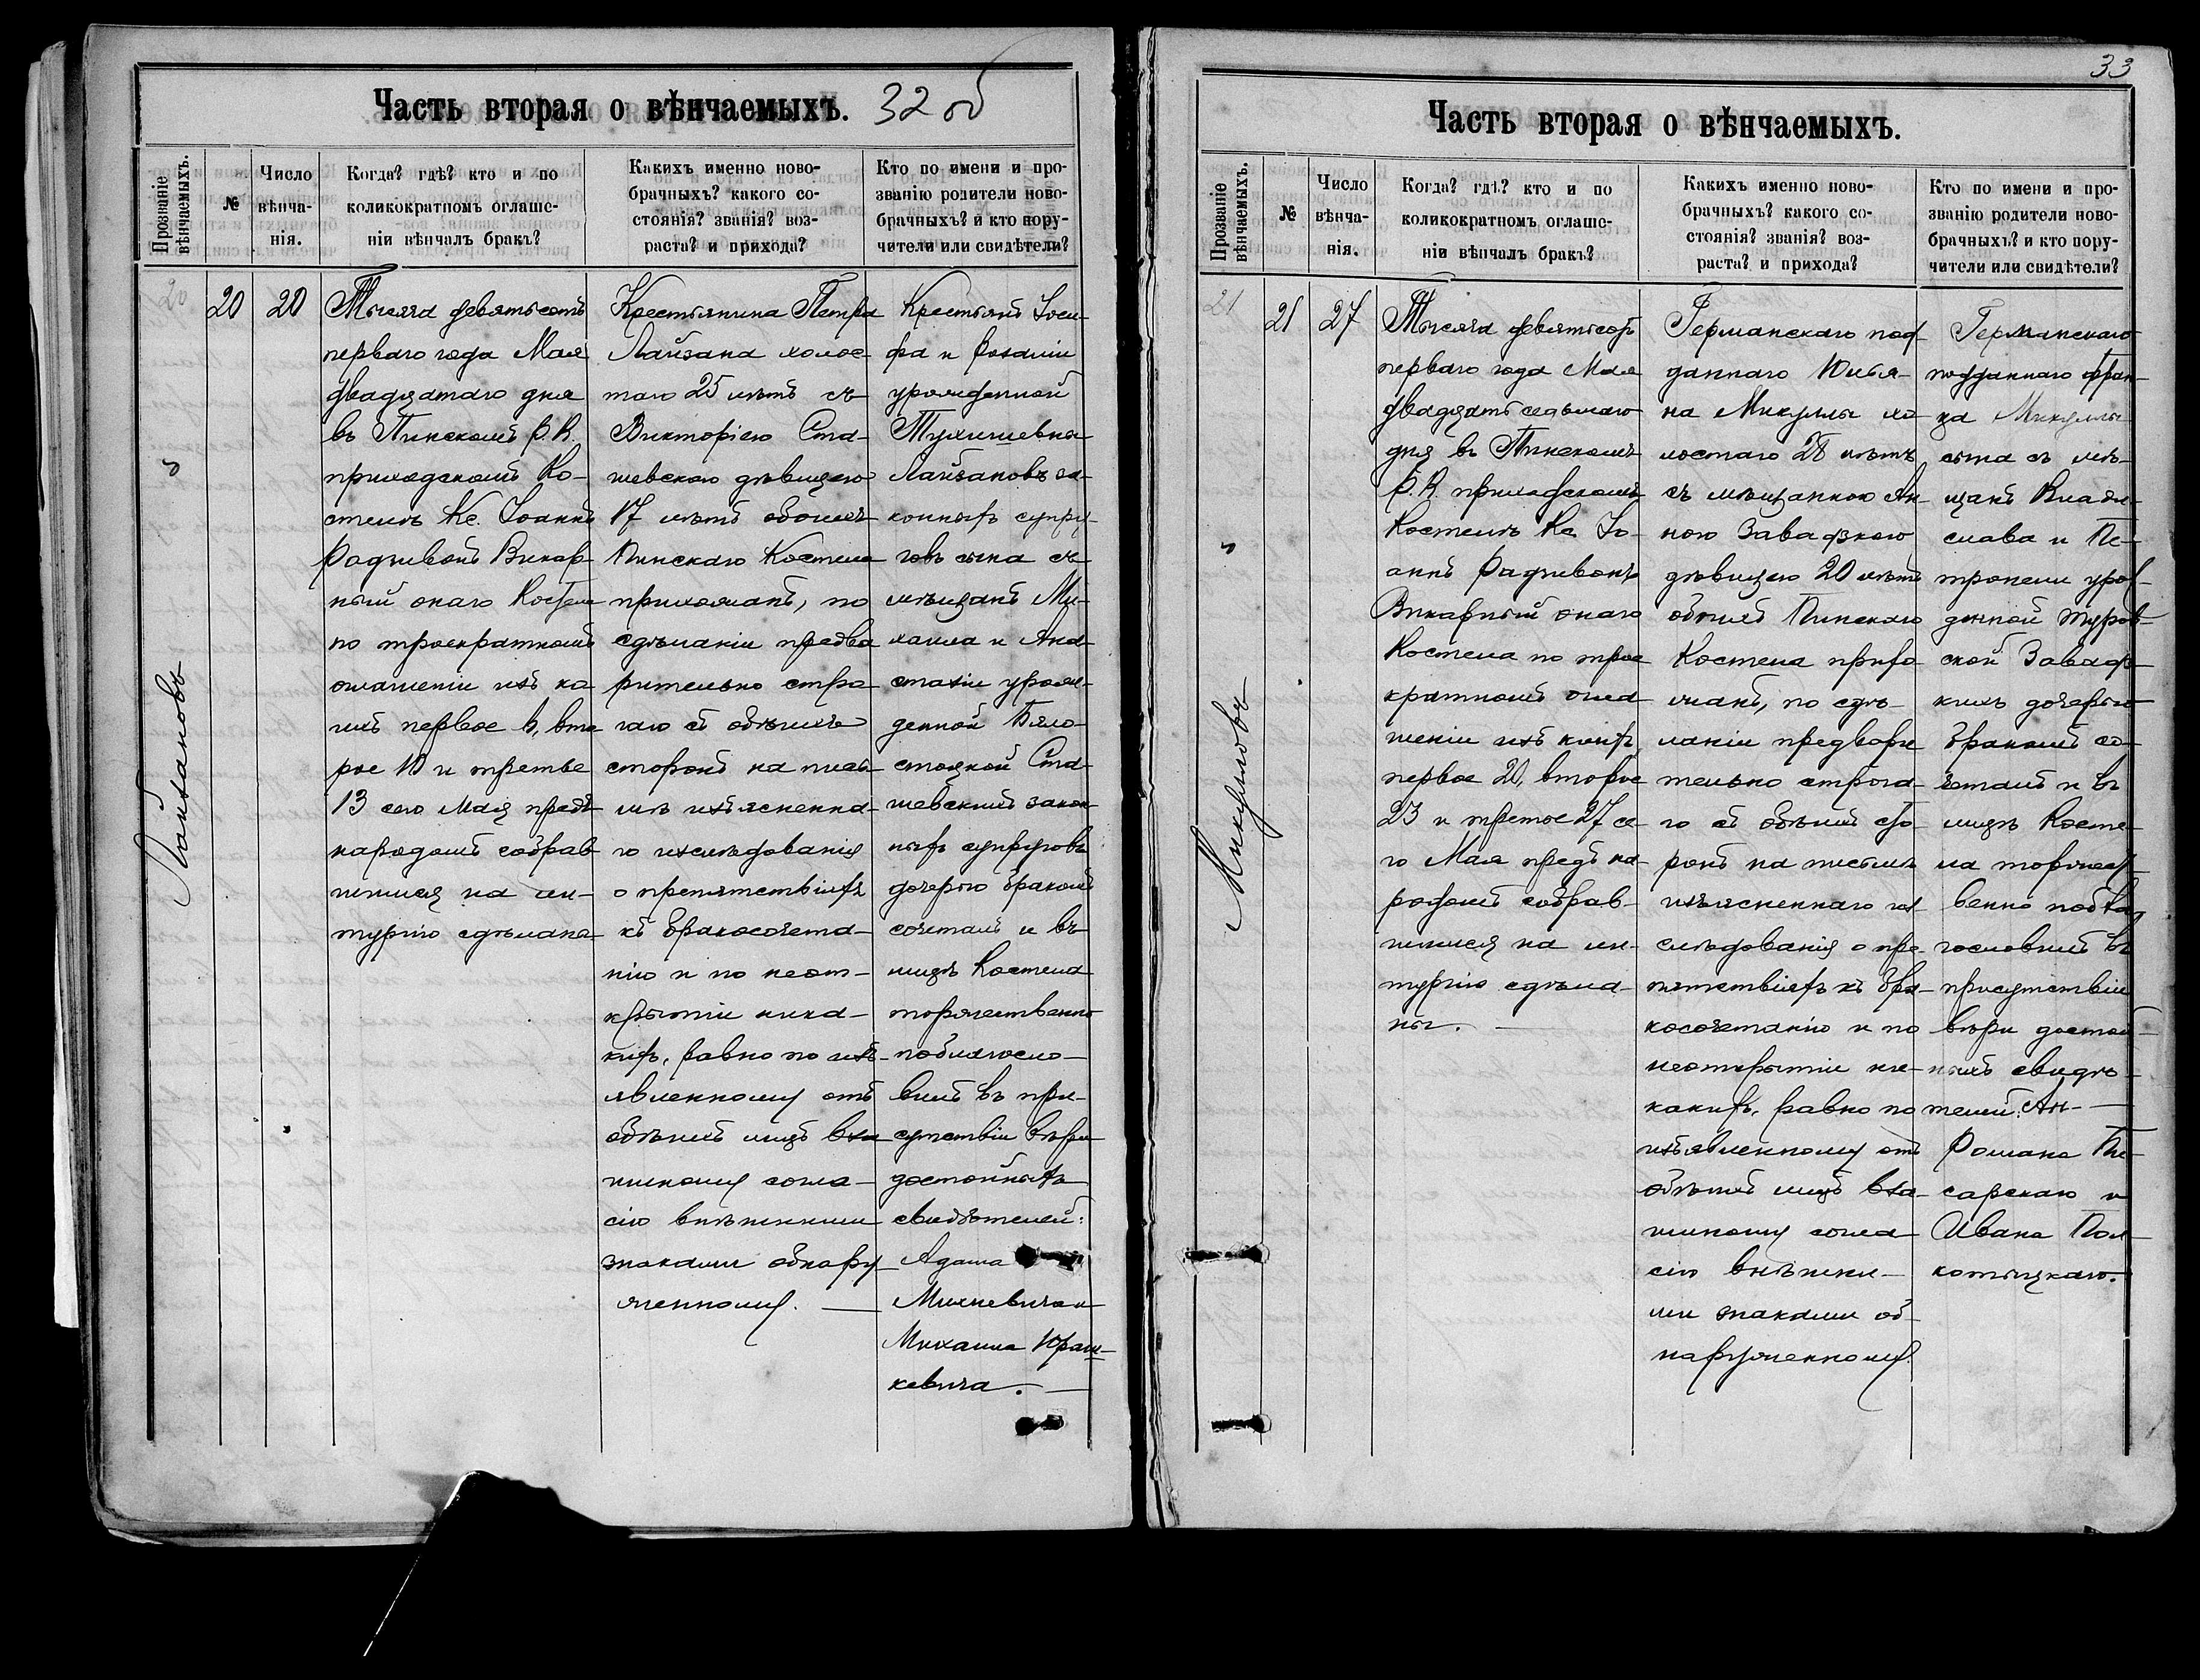 Часть вторая о вѣнчаемыхъ. 32 об
Прозваніе вѣнчаемыхъ.
№
Число вѣнча-
нія.
Когда? гдѣ? кто и по
коликократномъ оглаше-
ніи вѣнчалъ бракъ?
Какихъ именно ново-
брачныхъ? какого со-
стоянія? званія? воз-
раста? и прихода?
Кто по имени и про-
званію родители ново-
брачныхъ? и кто пору-
чители или свидѣтели?
20
Лайзановъ
20
20
Тысяча девятьсотъ
перваго года Мая
двадцатаго дня
въ Пинскомъ Р. К.
приходскомъ Ко-
стелѣ Кс. Іоаннъ
Радзивонъ Викар-
ный онаго Костела
по троекратномъ
оглашеніи изъ ко-
ихъ первое 6, вто
рое 10 и третье
13 сего Мая предъ
народомъ собрав
шимся на ли-
тургію сдѣлана
Крестьянина Петра
Лайзана холос
таго 25 лѣтъ съ
Викторіею Ста-
шевскою дѣвицею
17 лѣтъ обоихъ
Пинскаго Костела
прихожанъ, по
сдѣланіи предва
рительно стро
гаго съ обѣихъ
сторонъ на пись
мѣ изъясненна-
го изслѣдованія
о препятствіяхъ
къ бракосочета-
нію и по неот-
крытіи ника-
кихъ, равно по изъ-
явленному отъ
обѣихъ лицъ вза
имному согла-
сію внѣшними
знаками обнару
женному.
Крестьянъ Іоси-
фа и Розаліи
урожденной
Лайзановъ за-
конныхъ супру-
говъ сына съ
мѣщанъ Ми-
хаила и Ана-
стазіи урож-
денной Бяло-
стоцкой Ста-
шевскихъ закон
ныхъ супруговъ
дочерью бракомъ
сочеталъ и въ
лицѣ Костела
торжественно
поблагосло-
вилъ въ при-
сутствіи вѣро
достойныхъ
свидѣтелей:
Адама
Михневича и
Михаила Юраш-
кевича.
33
Часть вторая о вѣнчаемыхъ.
Прозваніе вѣнчаемыхъ.
№
Число
вѣнча-
нія.
Когда? гдѣ? кто и по
коликократномъ оглаше-
ніи вѣнчалъ бракъ?
Какихъ именно ново-
брачныхъ? какого со-
стоянія? званія? воз-
раста? и прихода?
Кто по имени и про-
званію родители ново-
брачныхъ? и кто пору-
чители или свидѣтели?
21
Микуловъ
21
27
Тысяча девятьсотъ
перваго года Мая
двадцать седьмаго
дня въ Пинскомъ
Р. К. приходскомъ
Костелѣ Кс. Іо-
аннъ Радзивонъ
Викарный онаго
Костела по трое
кратномъ огла
шеніи изъ коихъ
первое 20, второе
23 и третье 27 се
го Мая предъ на
родомъ собрав-
шимся на ли-
тургію сдѣла-
ны.
Германскаго под
даннаго Юлья-
на Микулы хо
лостаго 28 лѣтъ
съ мѣщанкою Ан
ною Завадзкою
дѣвицею 20 лѣтъ
обоихъ Пинскаго
Костела прихо
жанъ, по сдѣ-
ланіи предвари
тельно строга-
го съ обѣихъ сто-
ронъ на письмѣ
изъясненнаго из-
слѣдованія о пре-
пятствіяхъ къ бра-
косочетанію и по
неоткрытіи ни-
какихъ, равно по
изъявленному отъ
обѣихъ лицъ вза-
имному согла-
сію внѣшни-
ми знаками об-
наруженному.
Германскаго
подданнаго Фран-
ца Микулы
сына съ мѣ-
щанъ Влади-
слава и Пе-
тронели урож-
денной Туров-
ской Завадз-
кихъ дочерью
бракомъ со-
четалъ и въ
лицѣ Косте-
ла торжест-
венно побла
гословилъ въ
присутствіи
вѣро достой-
ныхъ свидѣ-
телей: Ан-
Романа Пи-
сарскаго и
Ивана Пол-
котыцкаго.